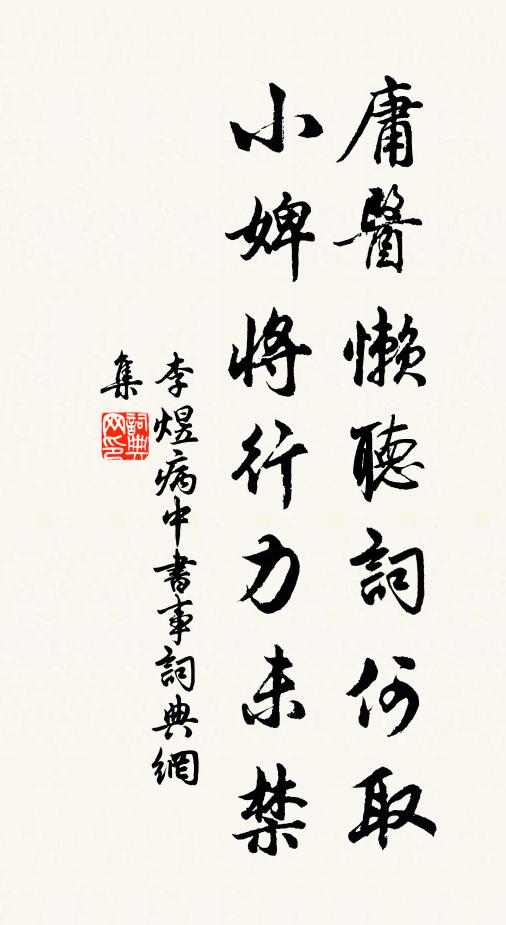 庸醫懶聽詞何取
小婢將行力未禁
李煜病中書事詞典網
集
詞典
网印